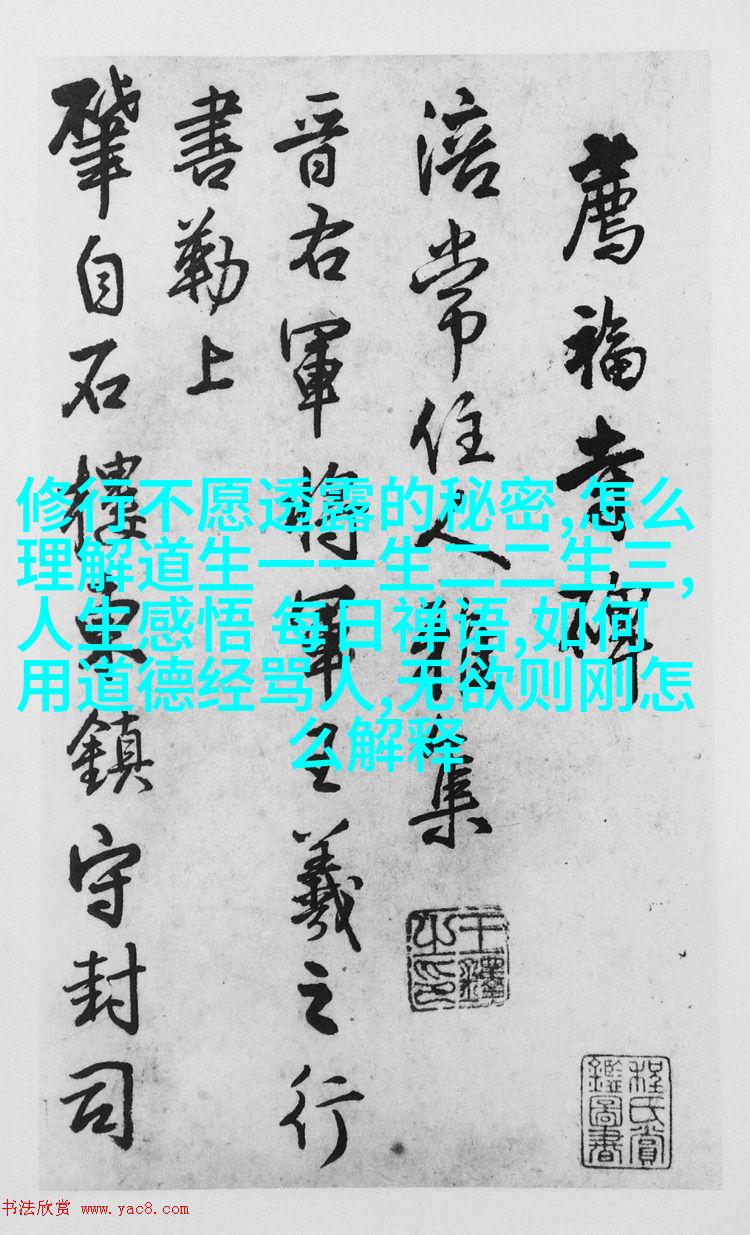 薦福寺碑
涪常住集
晉右軍將軍王羲之行
書勒上
肇自石樓東鎮守封司
王鐸之印
程氏賞鑑圖書
修行不愿透露的秘密,怎么
理解道生一一生二二生三,
人生感悟 每日禅语,如何
用道德经骂人,无欲则刚怎
么解释
书法欣赏 www.yac8.com